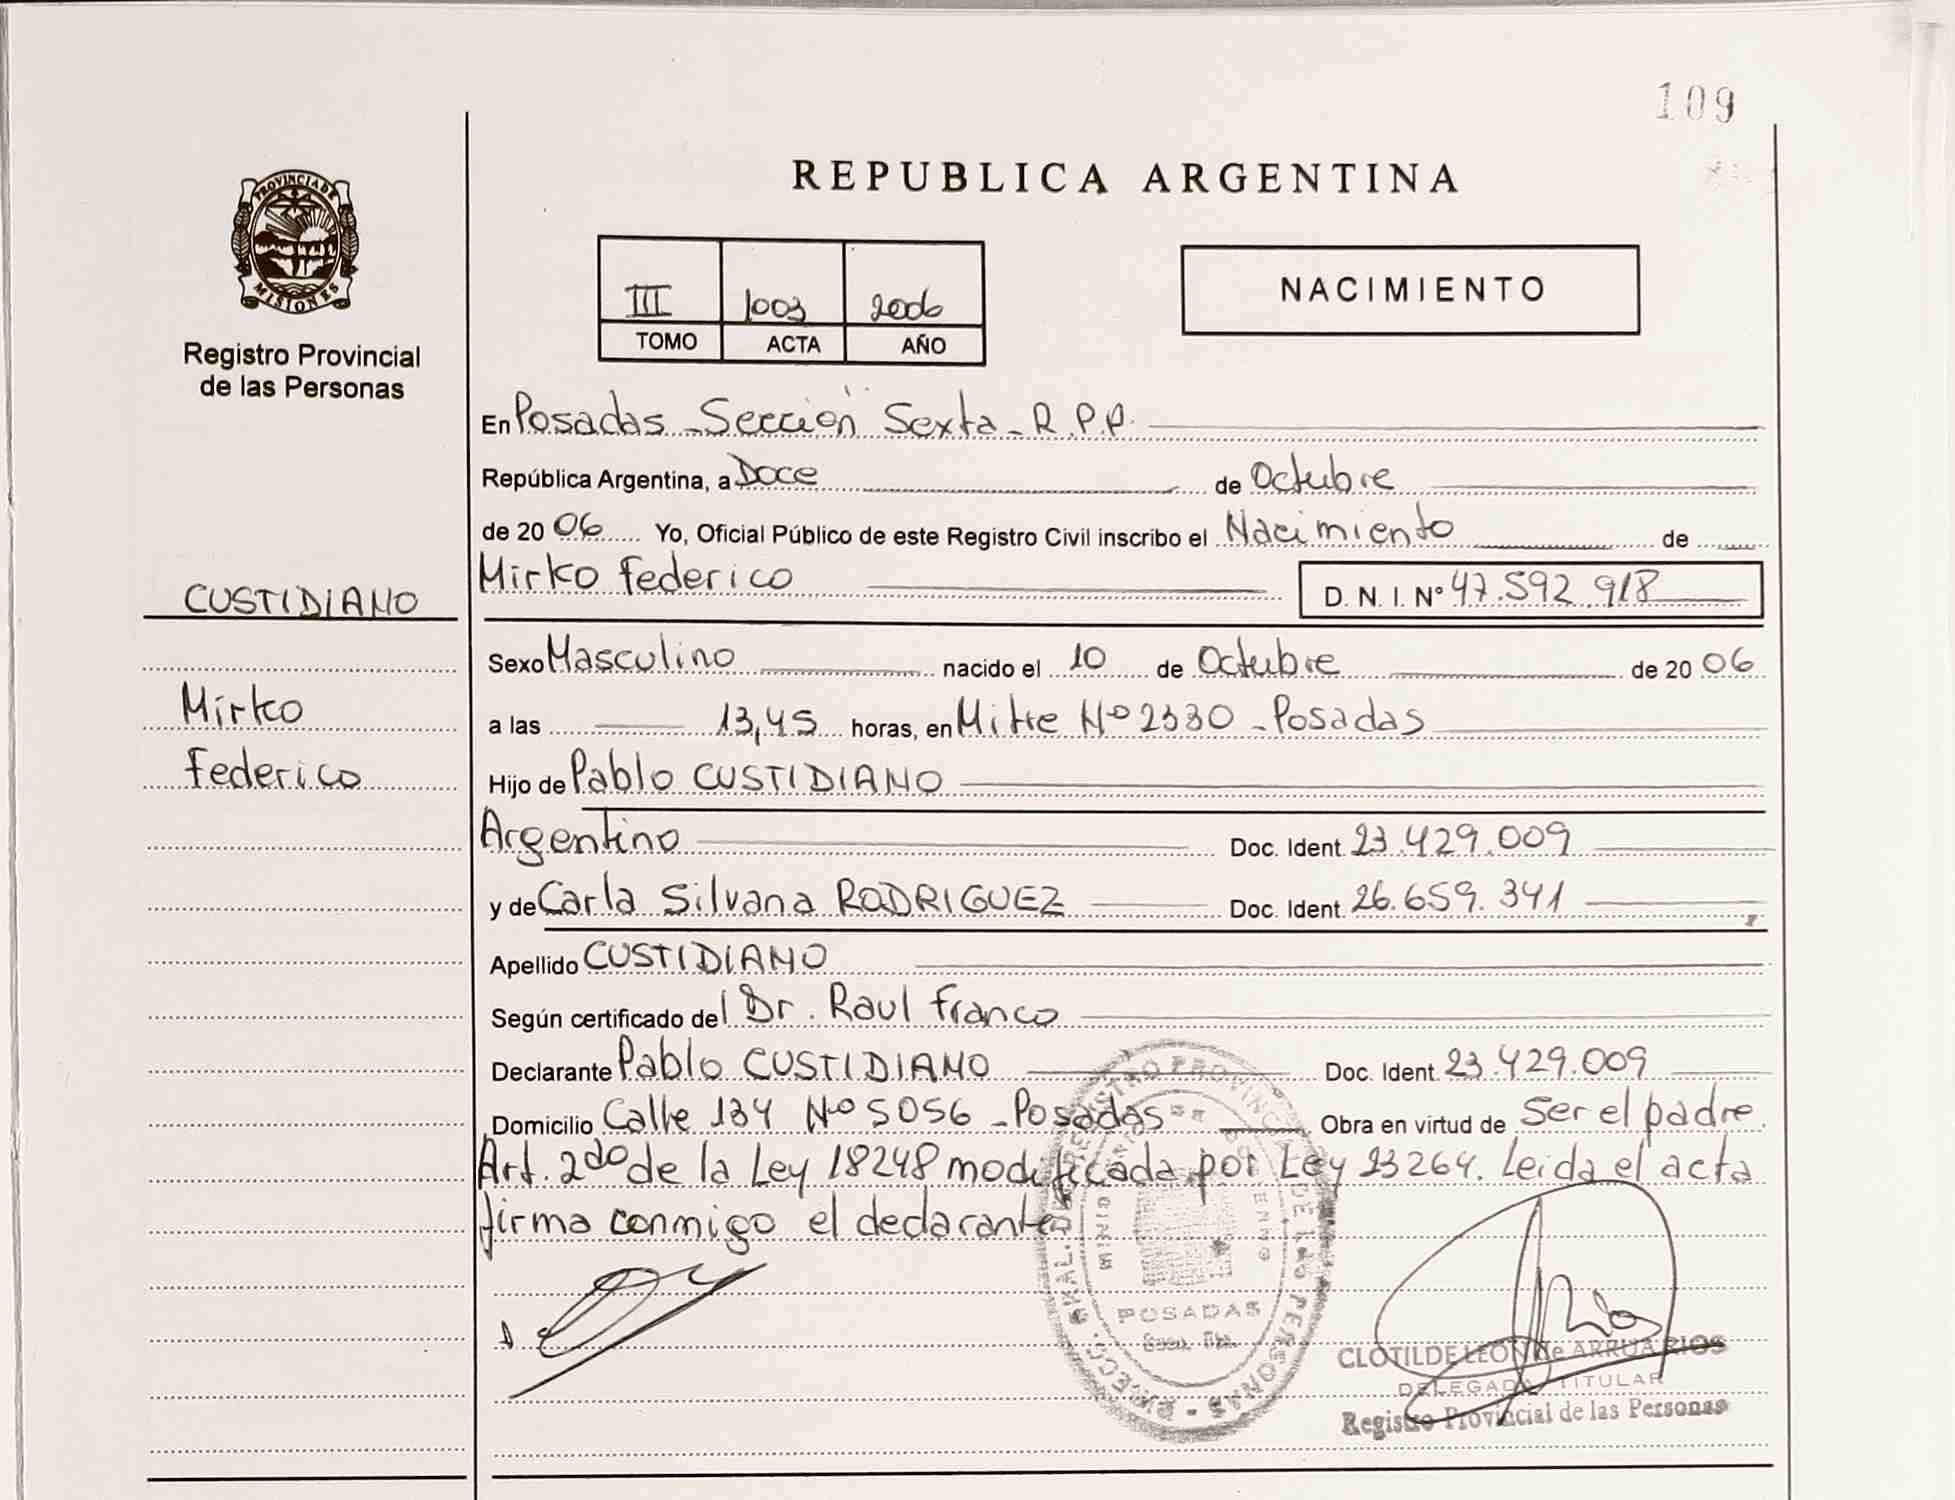 109
REPUBLICA ARGENTINA
PROVINCIA DE MISIONES
Registro Provincial
de las Personas
III 1003 2006
TOMO ACTA AÑO
NACIMIENTO
En Posadas - Sección Sexta - R.P.P.
República Argentina, a Doce de Octubre
de 2006 Yo, Oficial Público de este Registro Civil inscribo el Nacimiento de
CUSTIDIANO
Mirko Federico D. N. I. N° 47.592.918
Sexo Masculino nacido el 10 de Octubre de 2006
Mirko
a las 13,45 horas, en Mitre Nº 2330 - Posadas
Federico
Hijo de Pablo CUSTIDIANO
Argentino Doc. Ident. 23.429.009
y de Carla Silvana RODRIGUEZ Doc. Ident. 26.659.341
Apellido CUSTIDIANO
Según certificado del Dr. Raul Franco
Declarante Pablo CUSTIDIANO Doc. Ident. 23.429.009
Domicilio Calle 134 Nº 5056 - Posadas Obra en virtud de Ser el padre
Art. 2do de la Ley 18248 modificada por Ley 23264. Leida el acta
firma conmigo el declarante
POSADAS
CLOTILDE LEON de ARRUA RIOS
DELEGADA TITULAR
Registro Provincial de las Personas